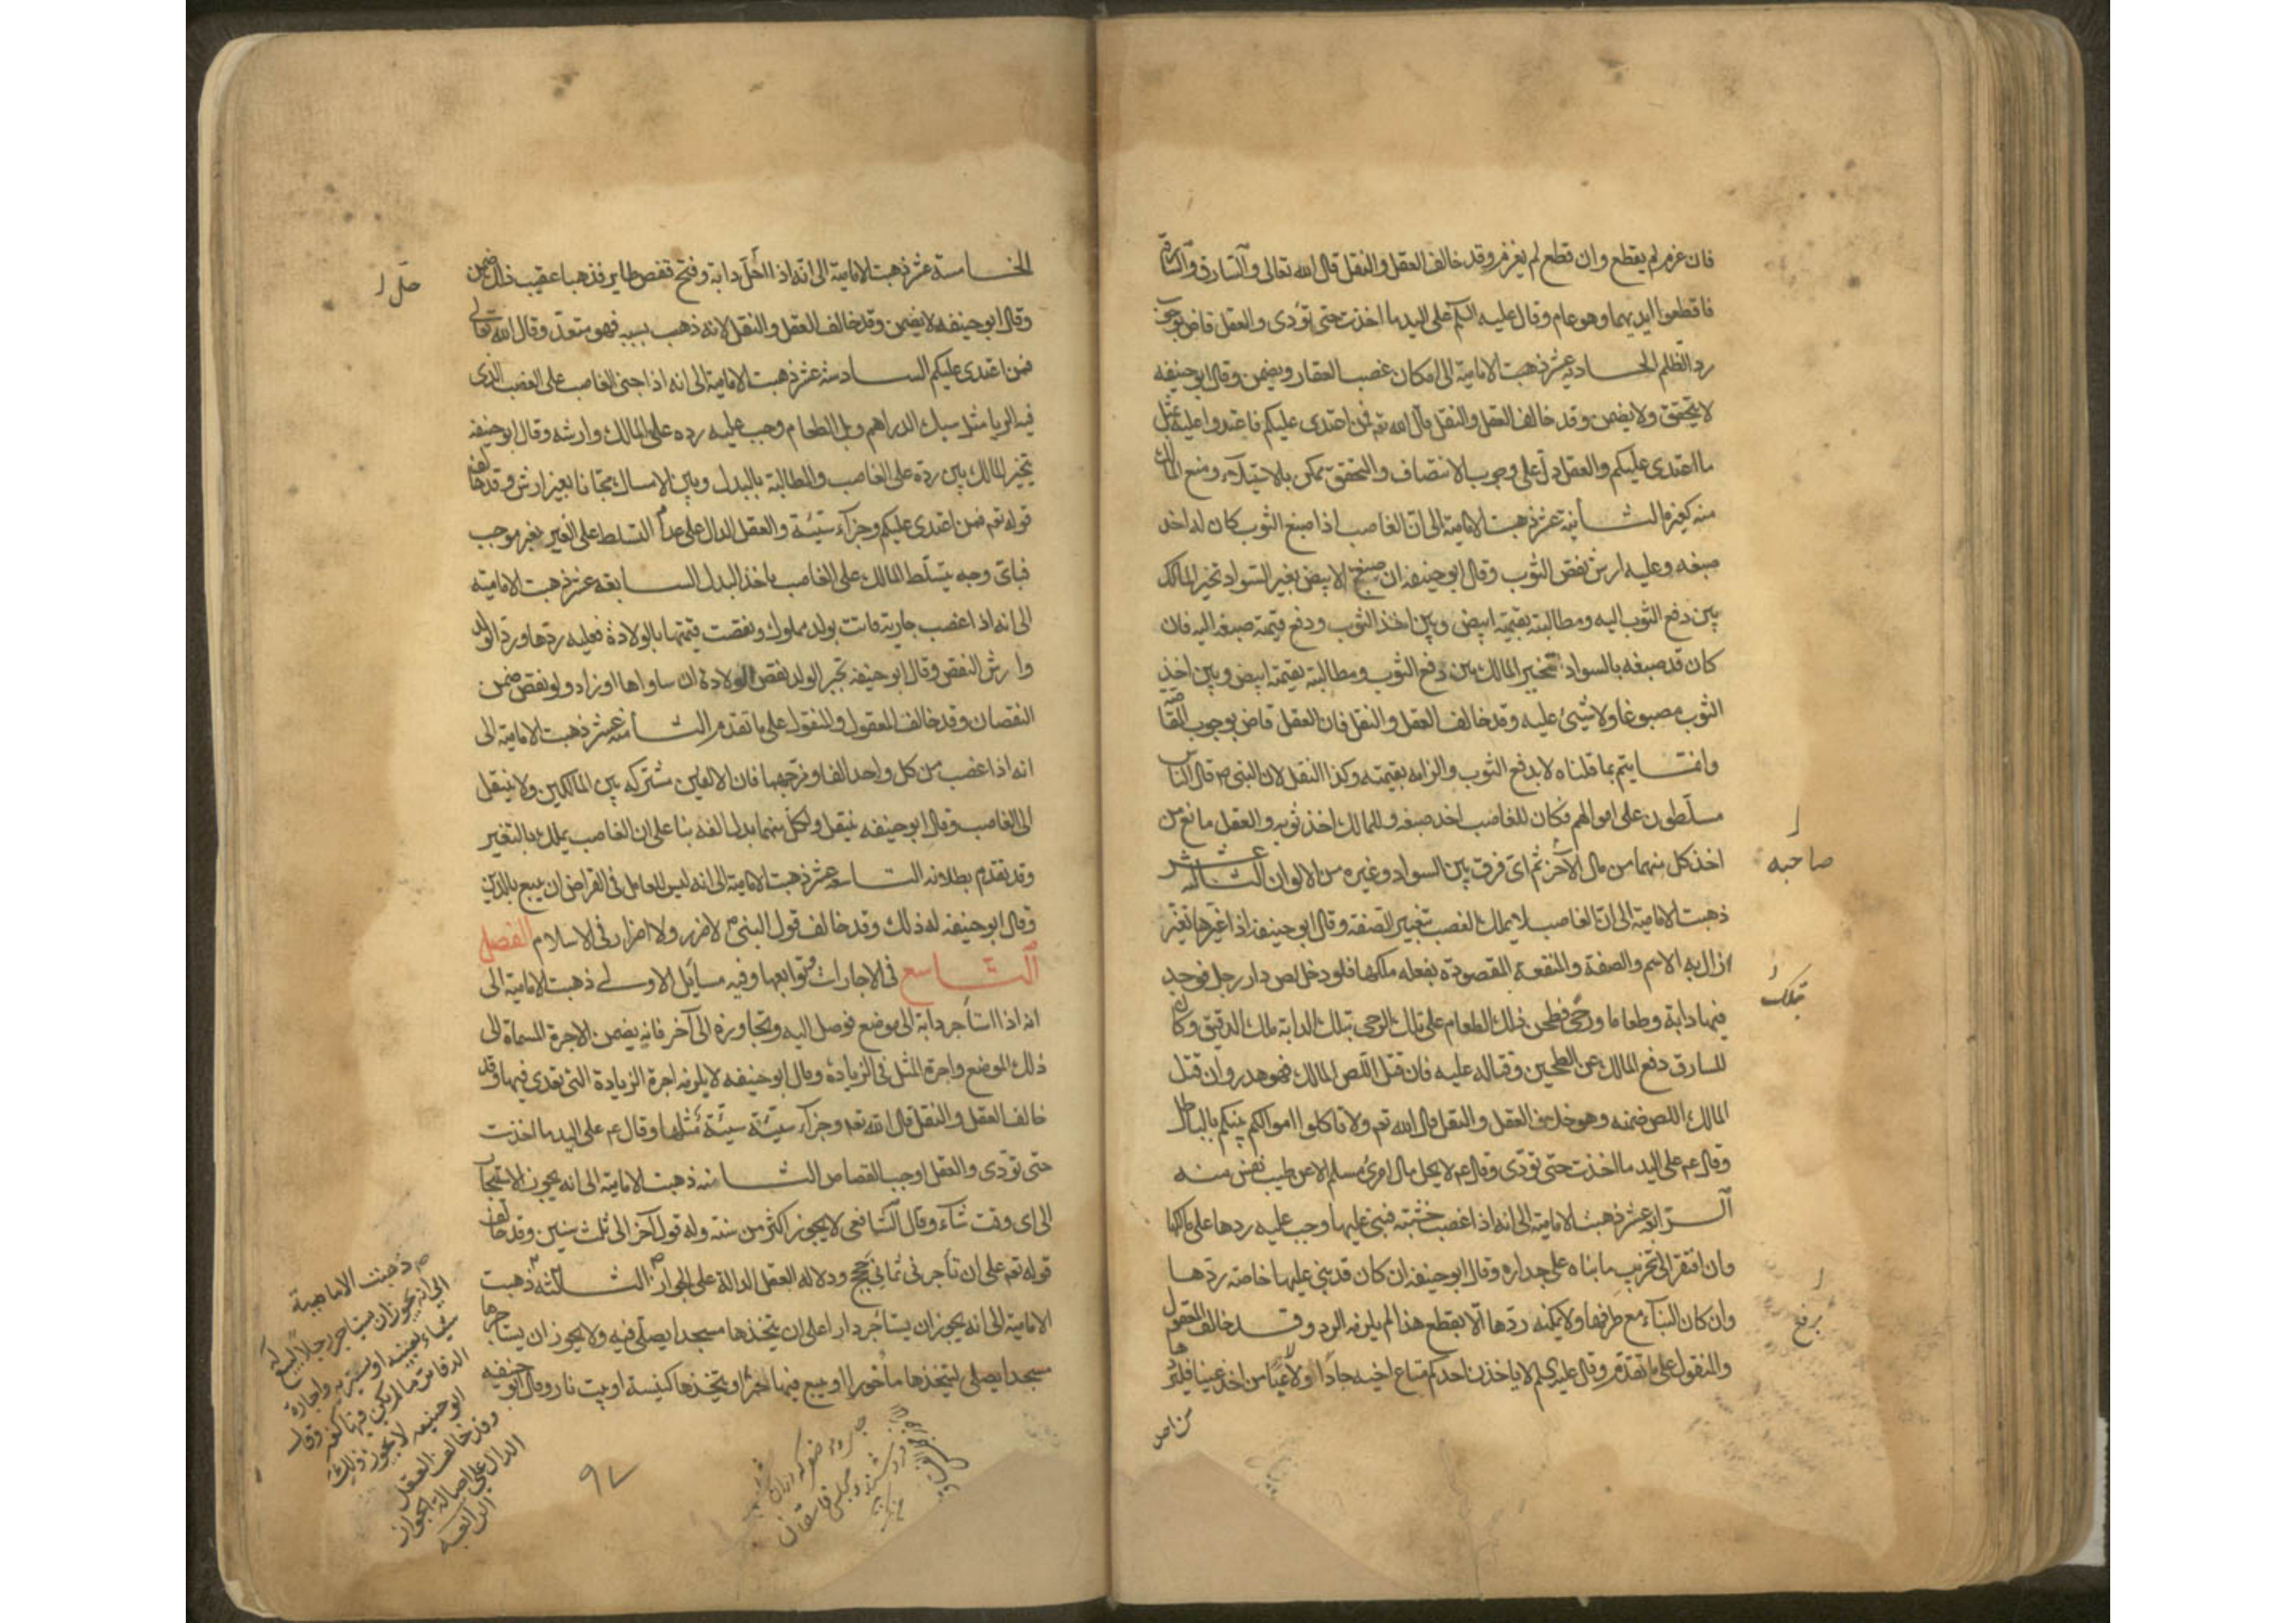 فان غرم لم يقطع وان قطع لم يغرم وقد خالف العقل والنقل قال الله تعالى والسارق والسارقة
فاقطعوا ايديهما وهو عام وقال عليه السلم على اليد ما اخذت حتى تؤدى والعقل قاض بوجوب
رد الظلم الحاديه عشر ذهبت الامامية الى امكان غصب العقار ويضمن وقال ابو حنيفه
لا يتحقق ولا يضمن وقد خالف العقل والنقل قال الله تع فمن اعتدى عليكم فاعتدوا عليه بمثل
ما اعتدى عليكم والعقل دل على وجوب الانتصاف والتحقق ممكن بالاستيلاء ومنع المالك
منه كغيره الثانية عشر ذهبت الامامية الى ان الغاصب اذا صبغ الثوب كان له اخذ
صبغه وعليه ارش نقص الثوب وقال ابو حنيفه ان صبغ الابيض بغير السواد تخير المالك
بين دفع الثوب اليه ومطالبته بقيمته ابيض وبين اخذ الثوب ودفع قيمة صبغه اليه فان
كان قد صبغه بالسواد تخير المالك بين دفع الثوب ومطالبته بقيمته ابيض وبين اخذ
الثوب مصبوغا ولا شئ عليه وقد خالف العقل والنقل فان العقل قاض بوجوب المقاصة
وانما يتم بما قلناه لا بدفع الثوب والزامه بقيمته وكذا النقل لان النبى ص قال الناس
مسلطون على اموالهم فكان للغاصب اخذ صبغه وللمالك اخذ ثوبه والعقل مانع من
اخذ كل منهما من مال الآخر ثم اى فرق بين السواد وغيره من الالوان الثالثه عشر
صاحبه
ذهبت الامامية الى ان الغاصب لا يملك الغصب بتغيير الصفة وقال ابو حنيفة اذا غيرها تغير
ازال به الاسم والصفة والمنفعة المقصودة بفعله ملكها فلو دخل لص دار رجل فوجد
فيها دابة وطعاما ورحى فطحن ذلك الطعام على تلك الرحى بتلك الدابة ملك الدقيق وكان
للسارق دفع المالك عن الطحين وقتاله عليه فان قتل اللص المالك فهو هدر وان قتل
المالك اللص ضمنه وهو خلاف العقل والنقل قال الله تع ولا تاكلوا اموالكم بينكم بالباطل
وقال ع م على اليد ما اخذت حتى تؤدى وقال ع م لا يحل مال امرئ مسلم الا عن طيب نفس منه
الرابعه عشر ذهبت الامامية الى انه اذا غصب خشبته فبنى عليها وجب عليه ردها على مالكها
وان افتقر الى تخريب ما بناه على جداره وقال ابو حنيفه ان كان قد بنى عليها خاصة ردها
وان كان البناء مع طرفها ولا يمكنه ردها الا بقطع هذا لم يلزمه الرد وقد خالف المعقول
رفع
والمنقول على ما تقدم وقال عليه السلم لا ياخذن احدكم متاع اخيه جادا ولا عبا من اخذ عينا فليردها
الخامسة عشر ذهبت الامامية الى انه اذا حل دابة وفتح قفص طاير فذهبا عقيب ذلك ضمن
حل
وقال ابو حنيفه لا يضمن وقد خالف العقل والنقل لانه ذهب بسببه فهو متعد وقال الله تعالى
فمن اعتدى عليكم السادسة عشر ذهبت الامامية الى انه اذا جنى الغاصب على الغصب الذى
فيه الربا مثل سبك الدراهم وبل الطعام وجب عليه رده على المالك وارشه وقال ابو حنيفه
يتخير المالك بين رده على الغاصب والمطالبة بالبدل وبين الامساك مجانا بغير ارش وقد خالف
قوله تع فمن اعتدى عليكم وجزاء سيئة والعقل الدال على عدم التسلط على الغير بغير موجب
فباى وجه يتسلط المالك على الغاصب باخذ البدل السابعه عشر ذهبت الامامية
الى انه اذا غصب جارية فاتت بولد مملوك ونقصت قيمتها بالولادة فعليه ردها ورد الولد
وارش النقص وقال ابو حنيفه يجبر الولد نقص الولادة ان ساواها او زاد ولو نقص ضمن
النقصان وقد خالف المعقول والمنقول على ما تقدم الثامنه عشر ذهبت الامامية الى
انه اذا غصب من كل واحد الفا ومزجهما فان الالفين مشتركة بين المالكين ولا ينتقل
الى الغاصب وقال ابو حنيفه ينتقل ولكل منهما بدل الفه بنا على ان الغاصب يملك بالتغيير
وقد تقدم بطلانه التاسعه عشر ذهبت الامامية الى انه ليس للعامل فى القراض ان يبيع بالدين
وقال ابو حنيفه له ذلك وقد خالف قول النبى ص لا ضرر ولا اضرار فى الاسلام الفصل
التاسع فى الاجارات وتوابعها وفيه مسايل الاولى ذهبت الامامية الى
انه اذا استأجر دابة الى موضع فوصل اليه وتجاوزه الى آخر فانه يضمن الاجرة المسماة الى
ذلك الموضع واجرة المثل فى الزيادة وقال ابو حنيفه لا يلزمه اجرة الزيادة التى تعدى فيها وقد
خالف العقل والنقل قال الله تع وجزاء سيئة سيئة مثلها وقال ع م على اليد ما اخذت
حتى تؤدى والعقل اوجب القصاص الثامنه ذهبت الامامية الى انه يجوز الاستيجار
الى اى وقت شاء وقال الشافعى لا يجوز اكثر من سنة وله قول آخر الى ثلث سنين وقد خالف
قوله تع على ان تأجرنى ثمانى حجج ودلالة العقل الدالة على الجواز الثالثه ذهبت
الامامية الى انه يجوز ان يستأجر دارا على ان يتخذها مسجدا يصلى فيه ولا يجوز ان يستاجرها
مسجدا يصلى ليتخذها ماخورا او يبيع فيها خمرا او يتخذها كنيسة او بيت نار وقال ابو حنيفه
ذهبت الامامية
الى انه يجوز ان يستاجر رجلا ليبيع له
شيئا بعينه او يشتريه واجارة
الدفاتر ما لم يكن فيها كفر وقال
ابو حنيفه لا يجوز ذلك
وقد خالف العقل
الدال على اصالة الجواز
الرابعه